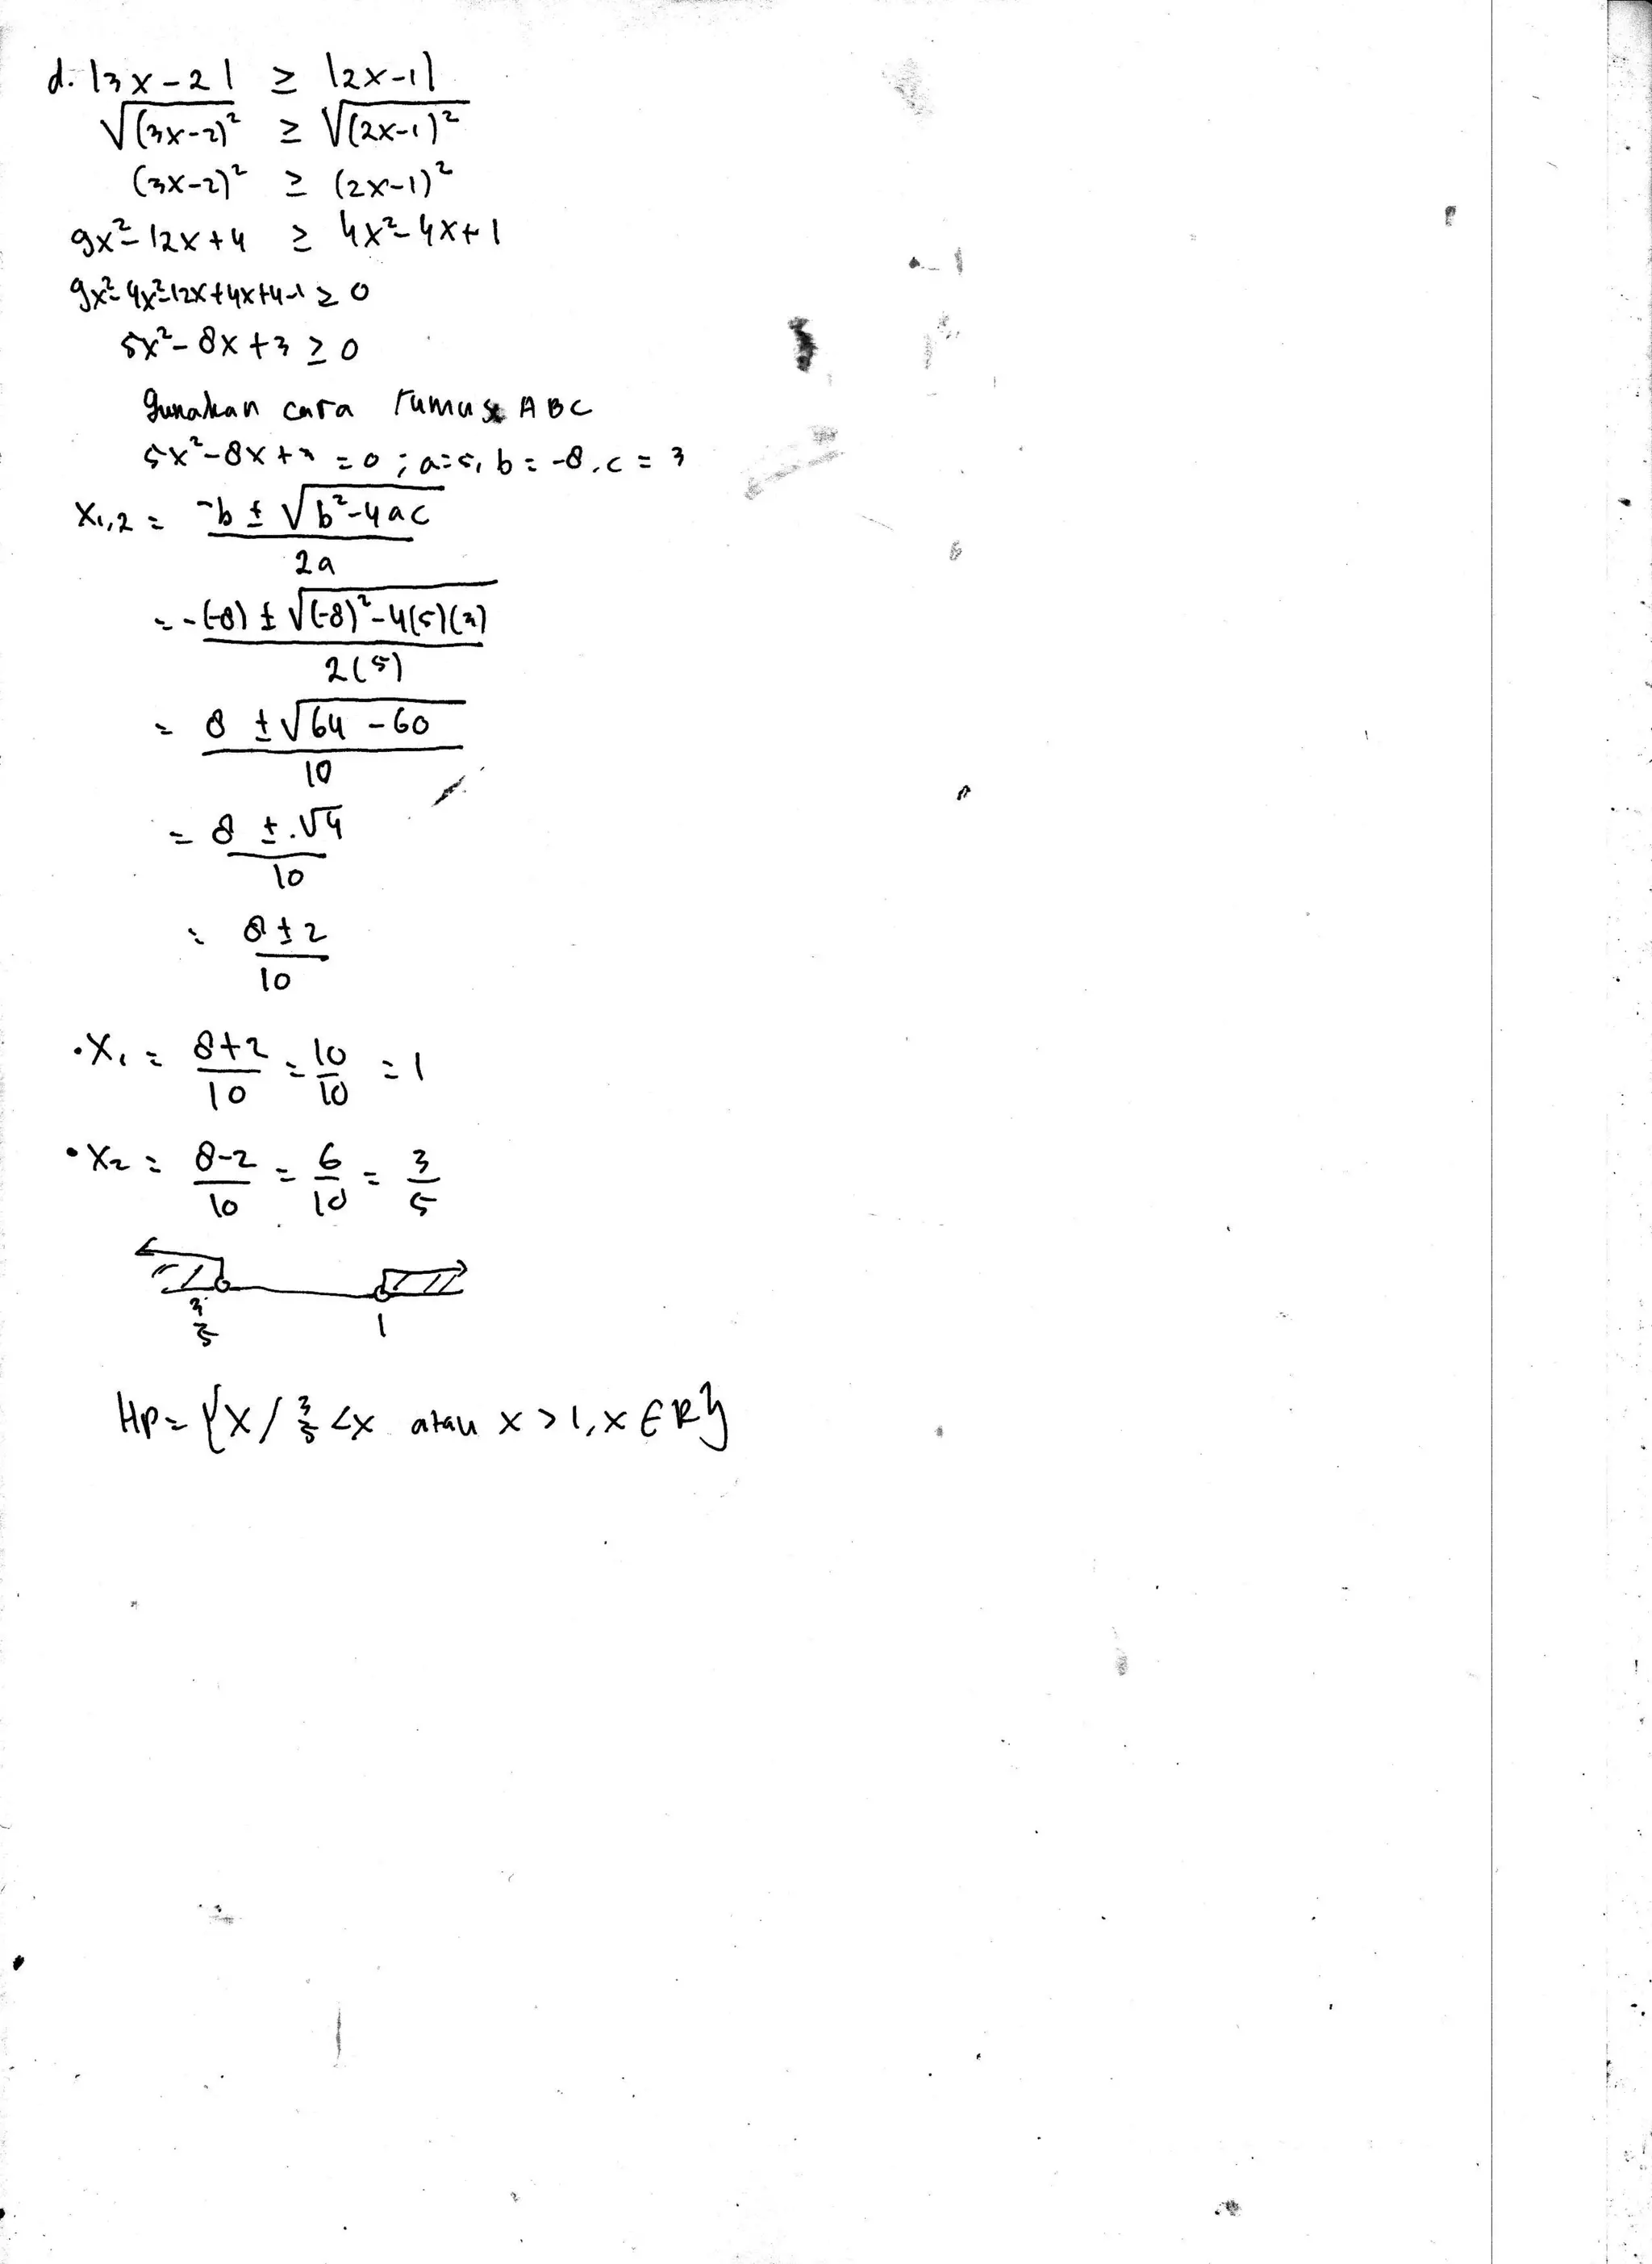 d. |3x-2| ≥ |2x-1|
√(3x-2)² ≥ √(2x-1)²
(3x-2)² ≥ (2x-1)²
9x²-12x+4 ≥ 4x²-4x+1
9x²-4x²-12x+4x+4-1 ≥ 0
5x²-8x+3 ≥ 0
Gunakan cara rumus ABC
5x²-8x+3 = 0 ; a=5, b = -8, c = 3
X₁,₂ = -b ± √b²-4ac
2a
= -(-8) ± √(-8)²-4(5)(3)
2(5)
= 8 ± √64-60
10
= 8 ± √4
10
= 8±2
10
• X₁ = 8+2/10 = 10/10 = 1
• X₂ = 8-2/10 = 6/10 = 3/5
3/5 1
HP = {X / 3/5 < x atau x > 1, x ∈ R}